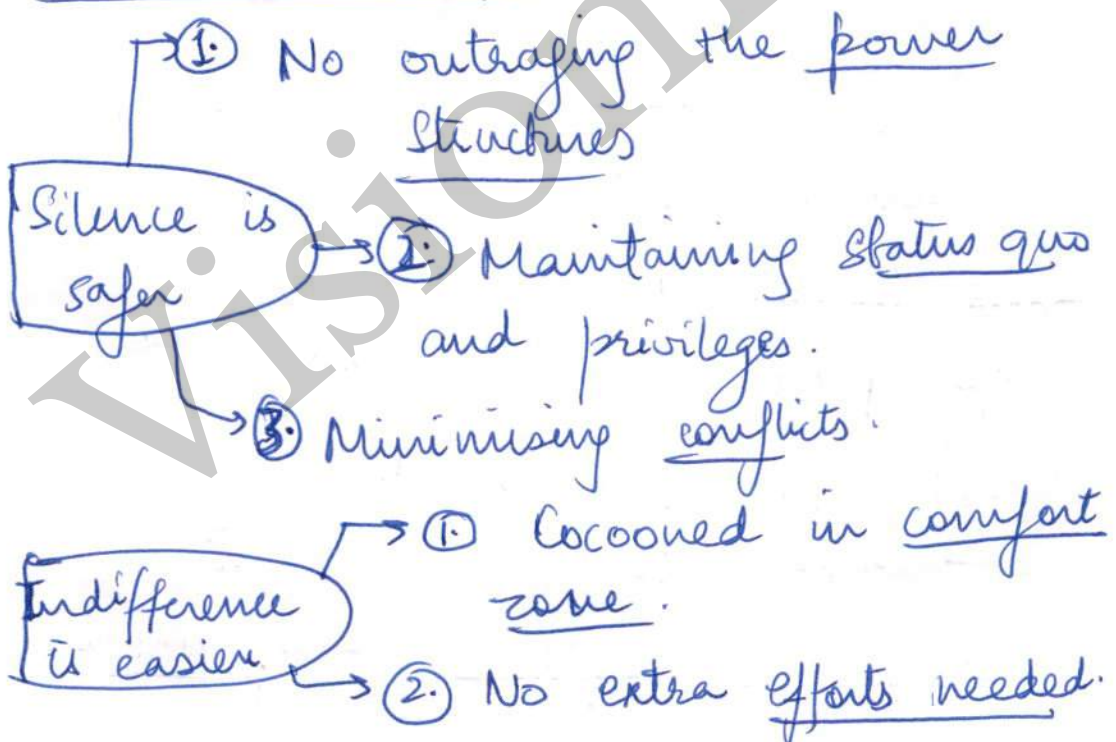 ① No outraging the power
structures
Silence is
safer
② Maintaining status quo
and privileges.
③ Minimising conflicts.
Indifference
is easier
① Cocooned in comfort
zone.
② No extra efforts needed.
Vision